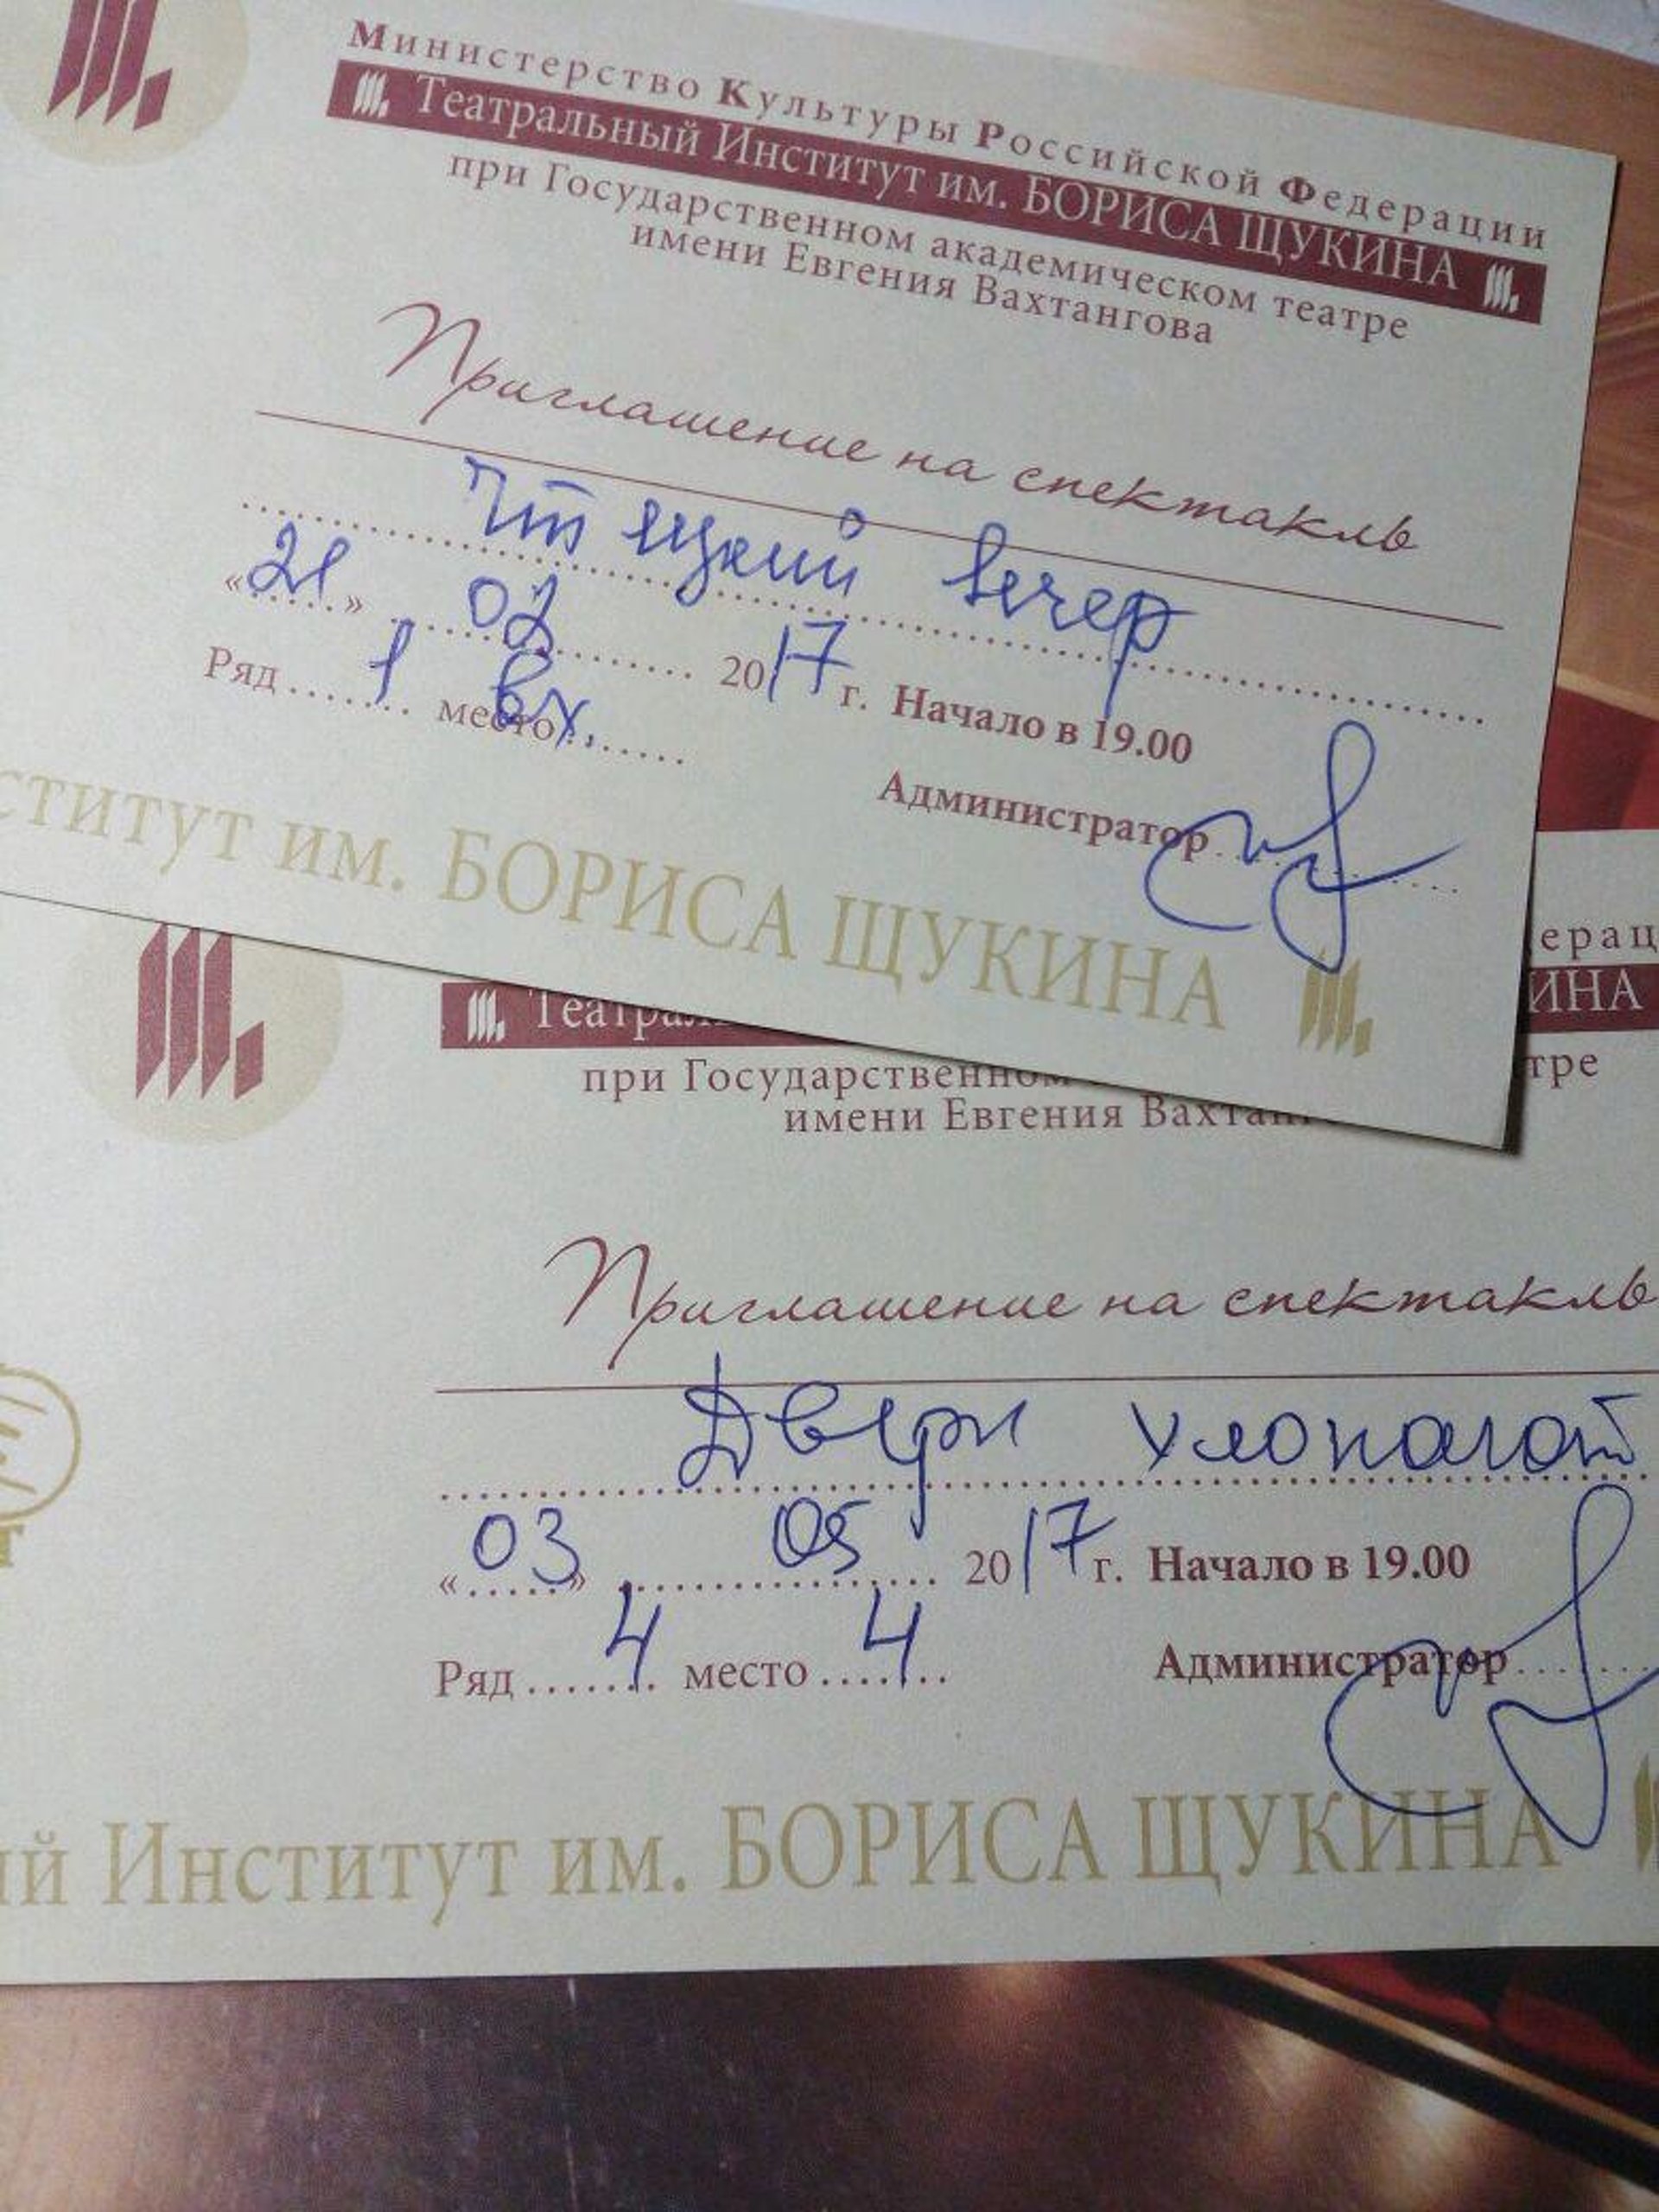 Министерство Культуры Российской Федерации
Театральный Институт им. БОРИСА ЩУКИНА
при Государственном академическом театре
имени Евгения Вахтангова
Приглашение на спектакль
вечер
«21» 02 2017 г. Начало в 19.00
Ряд 1 место вх.
Администратор
ститут им. БОРИСА ЩУКИНА
ерац
Театрал ИНА
при Государственном тре
имени Евгения Вахтанг
Приглашение на спектакль
Двери хлопают
«03» 05 2017 г. Начало в 19.00
Ряд 4 место 4
Администратор
ый Институт им. БОРИСА ЩУКИНА